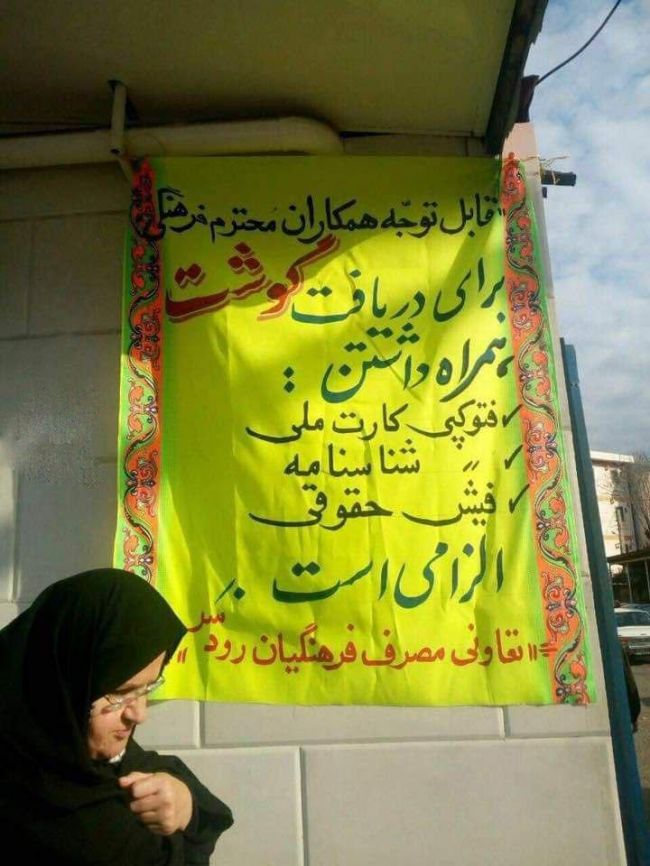 قابل توجّه همکاران مُحترم فرهنگی
برای دریافت گوشت
همراه داشتن :
✓ فتوکپی کارت ملی
✓ 〃 شناسنامه
✓ فیش حقوقی
الزامی است .
=«تعاونی مصرف فرهنگیان رودسر»